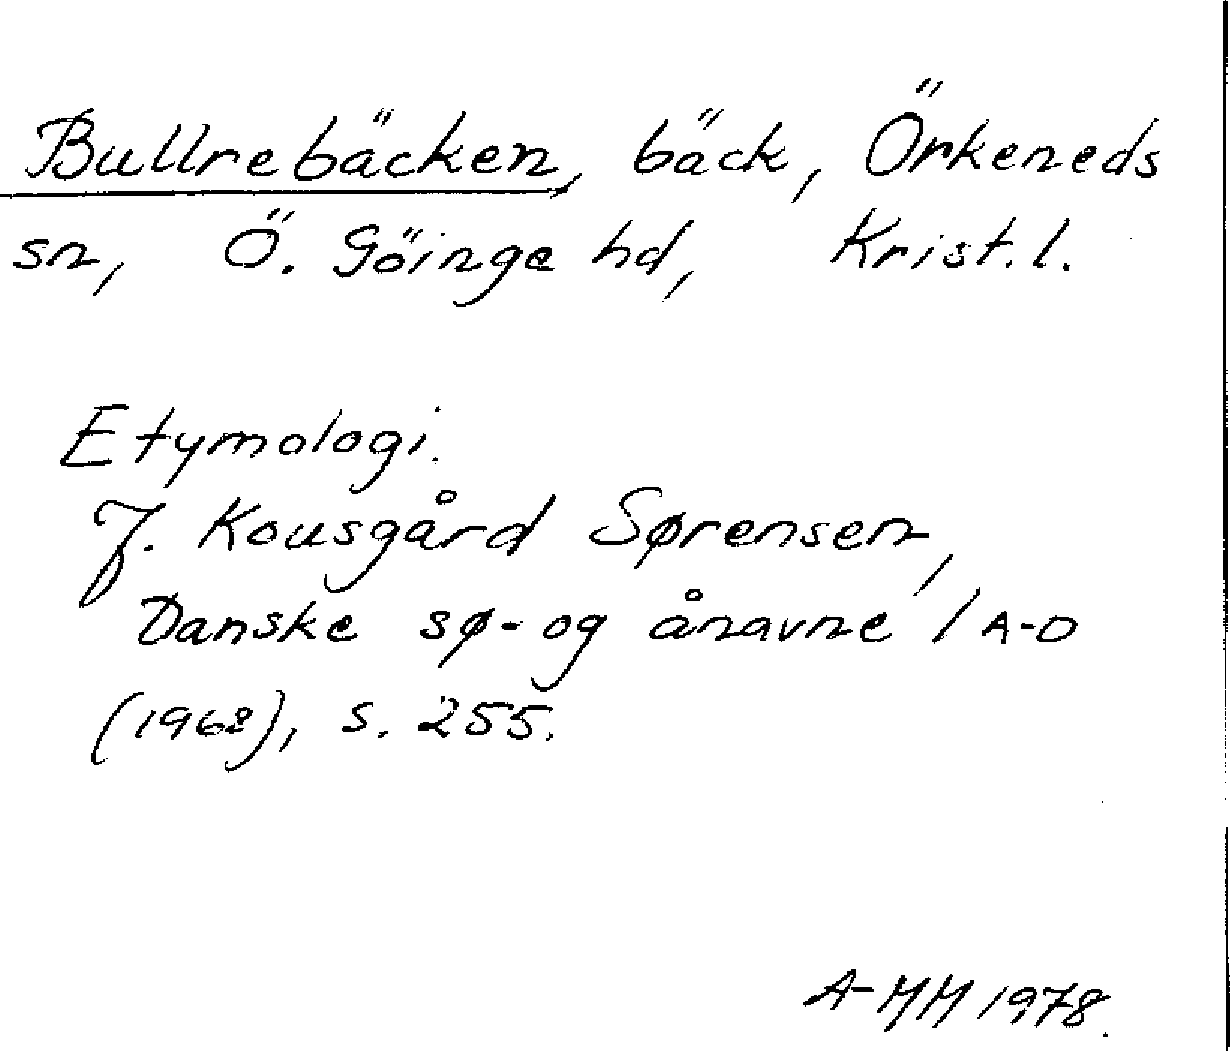 Bullrebäcken, bäck, Örkeneds
sn, Ö. Göinge hd, Krist. l.
Etymologi.
J. Kousgård Sørensen,
Danske sø- og ånavne 1 A-D
(1968), s. 255.
A-MM 1978.